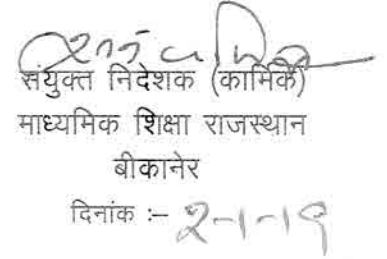 संयुक्त निदेशक (कार्मिक)
माध्यमिक शिक्षा राजस्थान
बीकानेर
दिनांक :– 2-1-19